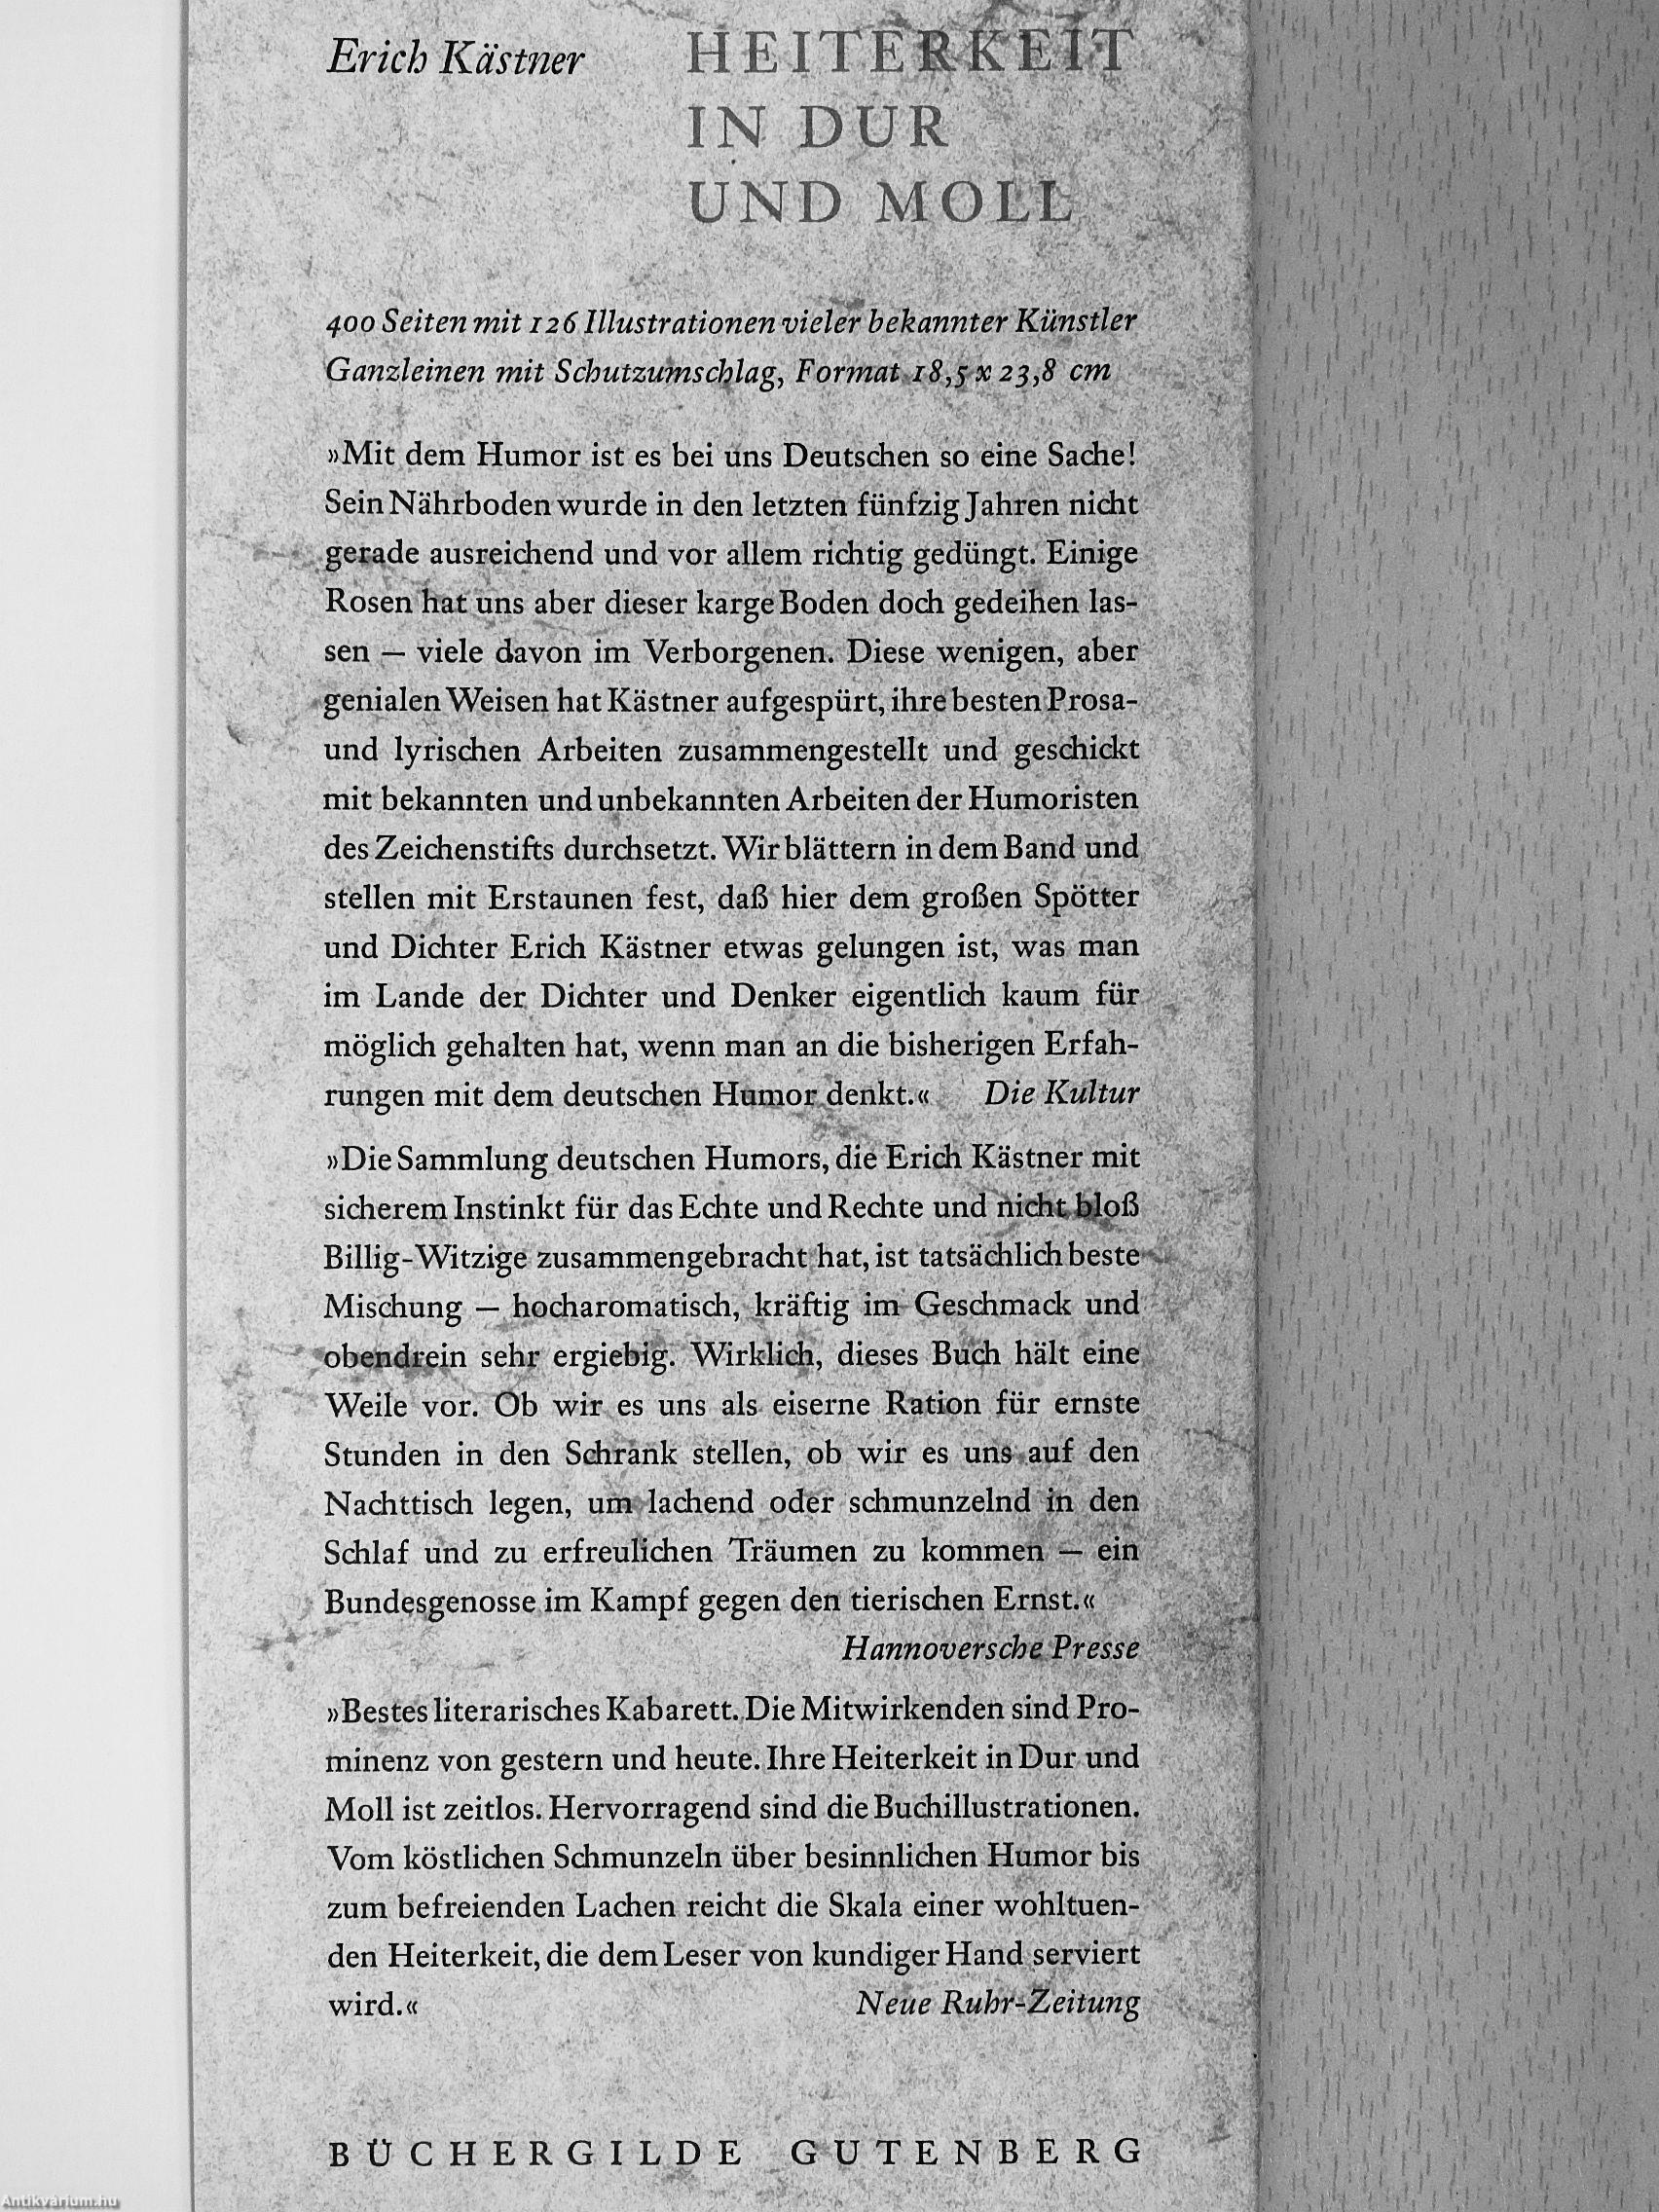 Erich Kästner
HEITERKEIT
IN DUR
UND MOLL
400 Seiten mit 126 Illustrationen vieler bekannter Künstler
Ganzleinen mit Schutzumschlag, Format 18,5 x 23,8 cm
»Mit dem Humor ist es bei uns Deutschen so eine Sache!
Sein Nährboden wurde in den letzten fünfzig Jahren nicht
gerade ausreichend und vor allem richtig gedüngt. Einige
Rosen hat uns aber dieser karge Boden doch gedeihen las-
sen — viele davon im Verborgenen. Diese wenigen, aber
genialen Weisen hat Kästner aufgespürt, ihre besten Prosa-
und lyrischen Arbeiten zusammengestellt und geschickt
mit bekannten und unbekannten Arbeiten der Humoristen
des Zeichenstifts durchsetzt. Wir blättern in dem Band und
stellen mit Erstaunen fest, daß hier dem großen Spötter
und Dichter Erich Kästner etwas gelungen ist, was man
im Lande der Dichter und Denker eigentlich kaum für
möglich gehalten hat, wenn man an die bisherigen Erfah-
rungen mit dem deutschen Humor denkt.« Die Kultur
»Die Sammlung deutschen Humors, die Erich Kästner mit
sicherem Instinkt für das Echte und Rechte und nicht bloß
Billig-Witzige zusammengebracht hat, ist tatsächlich beste
Mischung — hocharomatisch, kräftig im Geschmack und
obendrein sehr ergiebig. Wirklich, dieses Buch hält eine
Weile vor. Ob wir es uns als eiserne Ration für ernste
Stunden in den Schrank stellen, ob wir es uns auf den
Nachttisch legen, um lachend oder schmunzelnd in den
Schlaf und zu erfreulichen Träumen zu kommen — ein
Bundesgenosse im Kampf gegen den tierischen Ernst.«
Hannoversche Presse
»Bestes literarisches Kabarett. Die Mitwirkenden sind Pro-
minenz von gestern und heute. Ihre Heiterkeit in Dur und
Moll ist zeitlos. Hervorragend sind die Buchillustrationen.
Vom köstlichen Schmunzeln über besinnlichen Humor bis
zum befreienden Lachen reicht die Skala einer wohltuen-
den Heiterkeit, die dem Leser von kundiger Hand serviert
wird.« Neue Ruhr-Zeitung
BÜCHERGILDE GUTENBERG
Antikvárium.hu